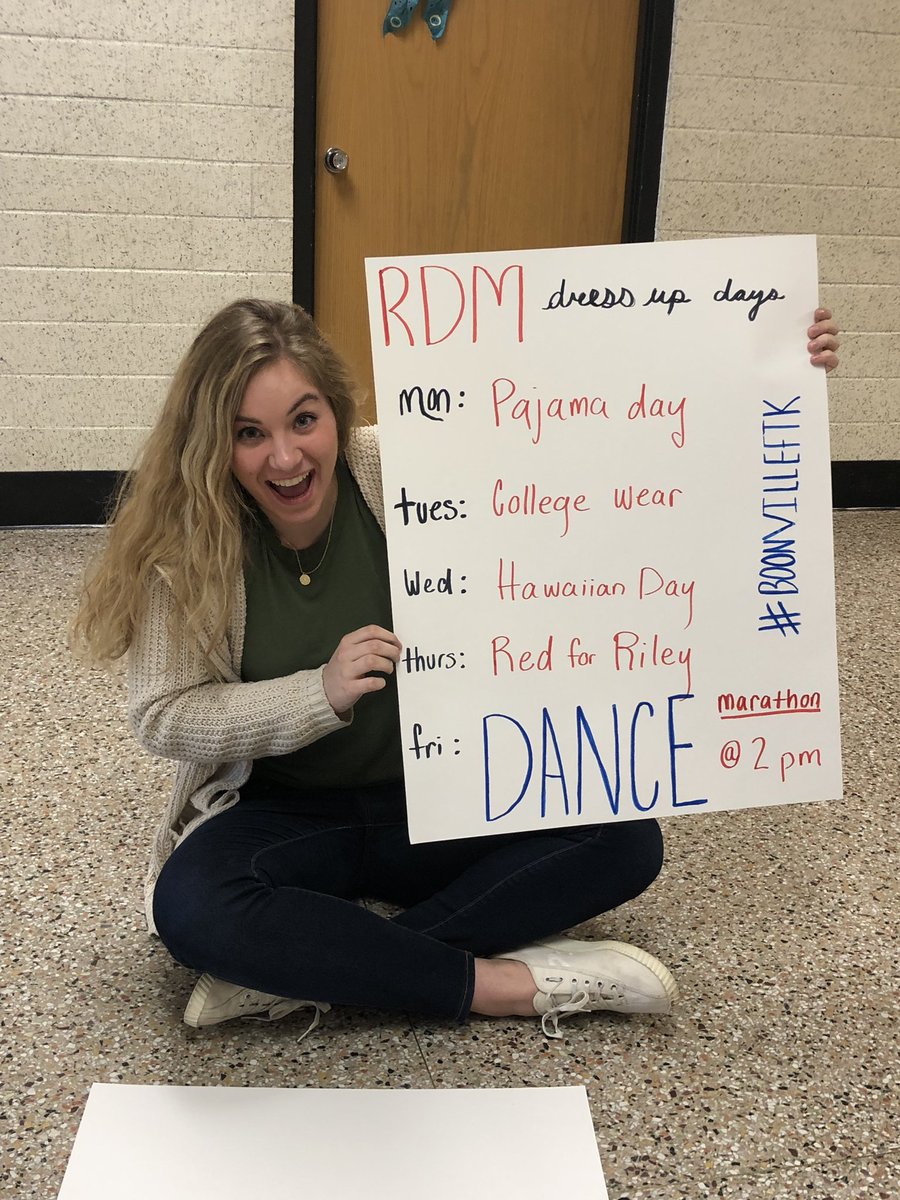 RDM dress up days
mon: Pajama day
tues: College wear
Wed: Hawaiian Day
thurs: Red for Riley
fri: DANCE marathon
@ 2 pm
#BOONVILLEFTK